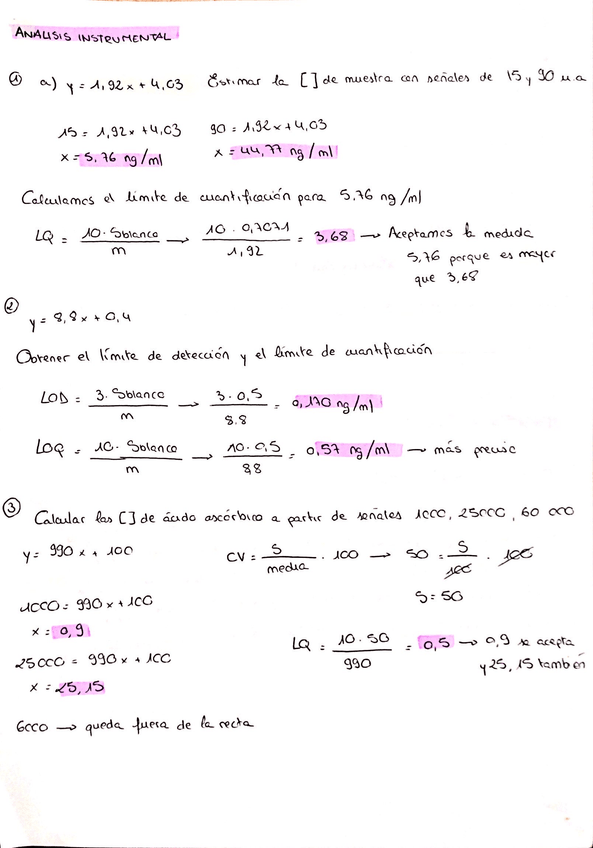 ANÁLISIS INSTRUMENTAL
① a) y = 1,92x + 4,03 Estimar la [] de muestra con señales de 15 y 90 u.a
15 = 1,92x + 4,03 90 = 1,92x + 4,03
x = 5,76 ng/ml x = 44,77 ng/ml
Calculamos el límite de cuantificación para 5,76 ng/ml
LQ = 10 · Sblanco / m → 10 · 0,7071 / 1,92 = 3,68 → Aceptamos la medida
5,76 porque es mayor
que 3,68
②
y = 8,8x + 0,4
Obtener el límite de detección y el límite de cuantificación
LOD = 3 · Sblanco / m → 3 · 0,5 / 8.8 = 0,170 ng/ml
LOQ = 10 · Sblanco / m → 10 · 0,5 / 8,8 = 0,57 ng/ml → más preciso
③ Calcular las [] de ácido ascórbico a partir de señales 1000, 25000, 60 000
y = 990x + 100 CV = S / media · 100 → 50 = S / 100 · 100
S = 50
1000 = 990x + 100
x = 0,9
LQ = 10 · 50 / 990 = 0,5 → 0,9 se acepta
y 25,15 también
25000 = 990x + 100
x = 25,15
6000 → queda fuera de la recta